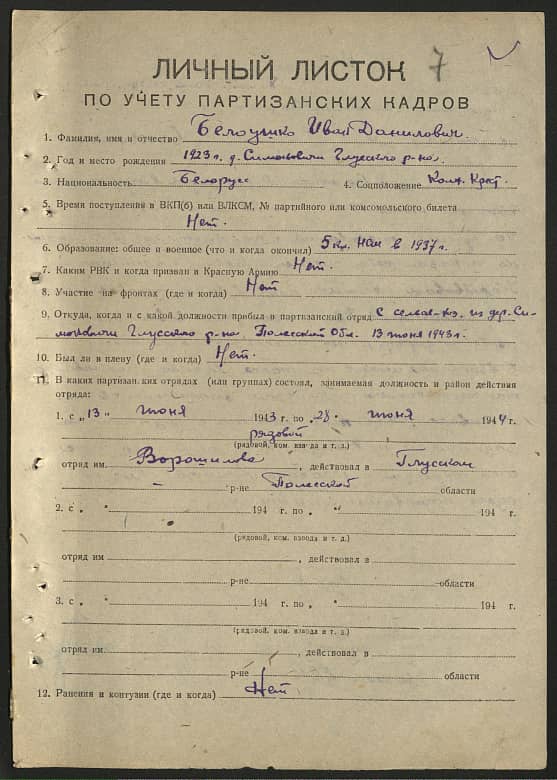 7
ЛИЧНЫЙ ЛИСТОК
ПО УЧЕТУ ПАРТИЗАНСКИХ КАДРОВ
1. Фамилия, имя и отчество Белоушко Иван Данилович.
2. Год и место рождения 1923 г. д. Симоновичи Глусского р-на.
3. Национальность Белорус 4. Соцположение Колх. Крест.
5. Время поступления в ВКП(б) или ВЛКСМ, № партийного или комсомольского билета
Нет.
6. Образование: общее и военное (что и когда окончил) 5 кл. НСШ в 1937 г.
7. Каким РВК и когда призван в Красную Армию Нет.
8. Участие на фронтах (где и когда) Нет
9. Откуда, когда и с какой должности прибыл в партизанский отряд С сельск-хоз. из дер. Си-
моновичи Глусского р-на Полесской Обл. 13 июня 1943 г.
10. Был ли в плену (где и когда) Нет.
11. В каких партизан.ких отрядах (или группах) состоял, занимаемая должность и район действия
отряда:
1. с „13 " июня 1943 г. по „28. " июня 1944 г.
рядовой
(рядовой, ком. взвода и т. д.)
отряд им. Ворошилова, действовал в Глусском
— р-не Полесской области
2. с „ " 194 г. по „ " 194 г.
(рядовой, ком. взвода и т. д.)
отряд им , действовал в
р-не области
3. с „ " 194 г. по „ " 194 г.
(рядовой, ком. взвода и т. д.)
отряд им. , действовал в
р-не области
12. Ранения и контузии (где и когда) Нет